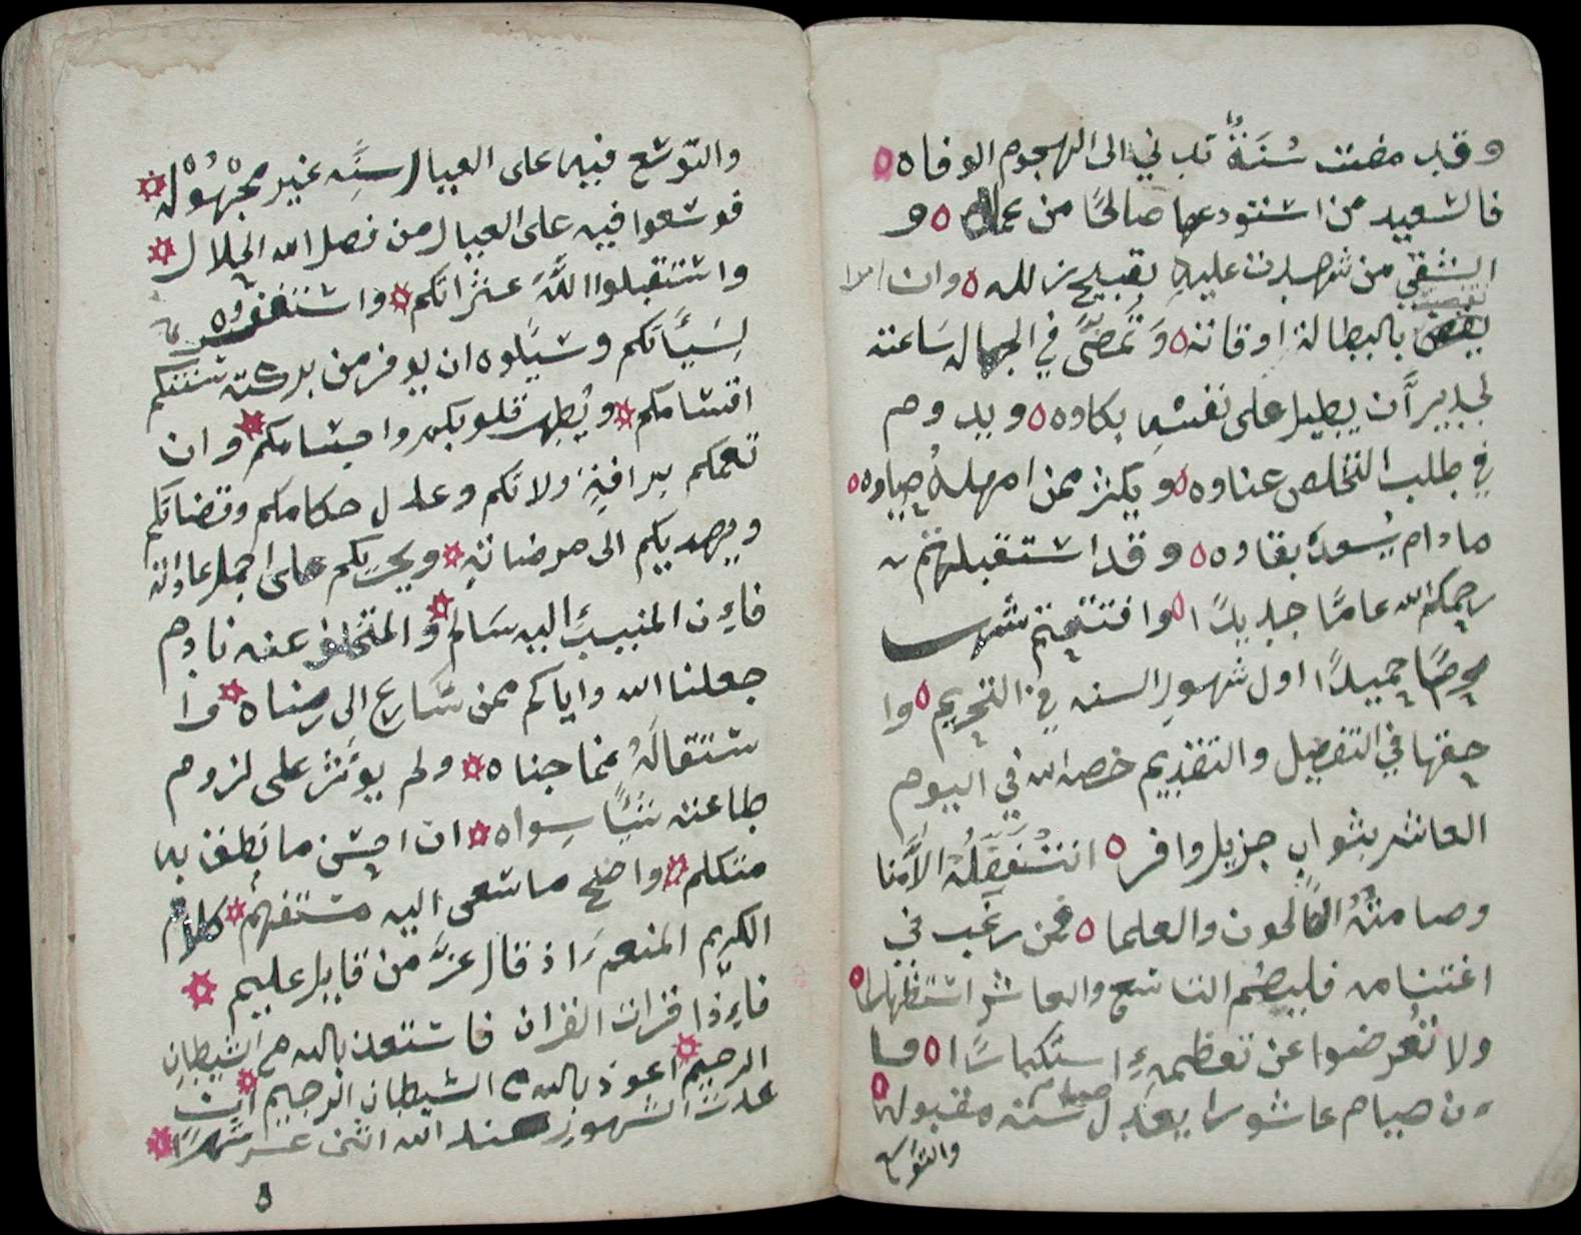 وقد مضت سُنَةٌ تدني الى الهجوم الوفاه
فالسعيد من استودعها صالحًا من عمله و
الشقي من شهدت عليهِ بقبيح زلله وان امرا
بالبطالة اوقاته وَتمضىّ في الجهاله سَاعته
لجدير أَن يطيل على نفسهِ بكاوه ويدوم
في طلب التخلص عناوه ويكثر ممن امهلهُ حياوه
مادام يُسعدهُ بقاوه وقد استقبلتم
رحمكم الله عامًا جديدًا وافتتحتم شهر
حميدًا اول شهورِ السنه في التحريم وا
حقها في التفضيل والتقديم خصه الله في اليوم
العاشر بثوابٍ جزيل وافر
وصامتهُ الصالحون والعلما فمن رغب في
اغتنامه فليصُم التاسع والعاشر استظهارا
ولا تُعرضوا عن تعظيمهِ استكباسًا فا
ءن صيام عاشورا يعدل صيام سنه مقبوله
والتوسع
والتوسّع فيه على العيال سنّه غير مجْهُوْله
فوسّعوا فيه على العيال من فضل الله الحلال
واستقيلوا اللَّهَ عثراتكم واستغفروه
لِسَيّأتكم وسيَلوه ان يوفر من بركته سنتكم
اقسامكم ويُطهر قلوبكم واجسامكم وان
تعمكم برافةِ ولاتكم وعدل حكامكم وقضاتكم
ويهديكم الى مرضاتهِ ويجريكم على اجمل عاداته
فاءِن المنيبَ اليه سَالم والمتخلف عنه نادم
جعلنا الله واياكم ممن سَارع الى رضاه وا
ستقالَهُ مما جناه ولم يوثر على لزوم
طاعته شيًا سِواه ان احسن ما نطق به
متكلم واضح ما سعى اليه مستفهم كلام
الكريم المنعم اذ قال عزَّ من قايل عليم
فاءِذا قرات القران فاستعذ بالله من الشيطان
الرجيم اعوذ بالله من الشيطان الرجيم ان
عدتَ الشهورِ عند الله اثنى عشر شهرًا